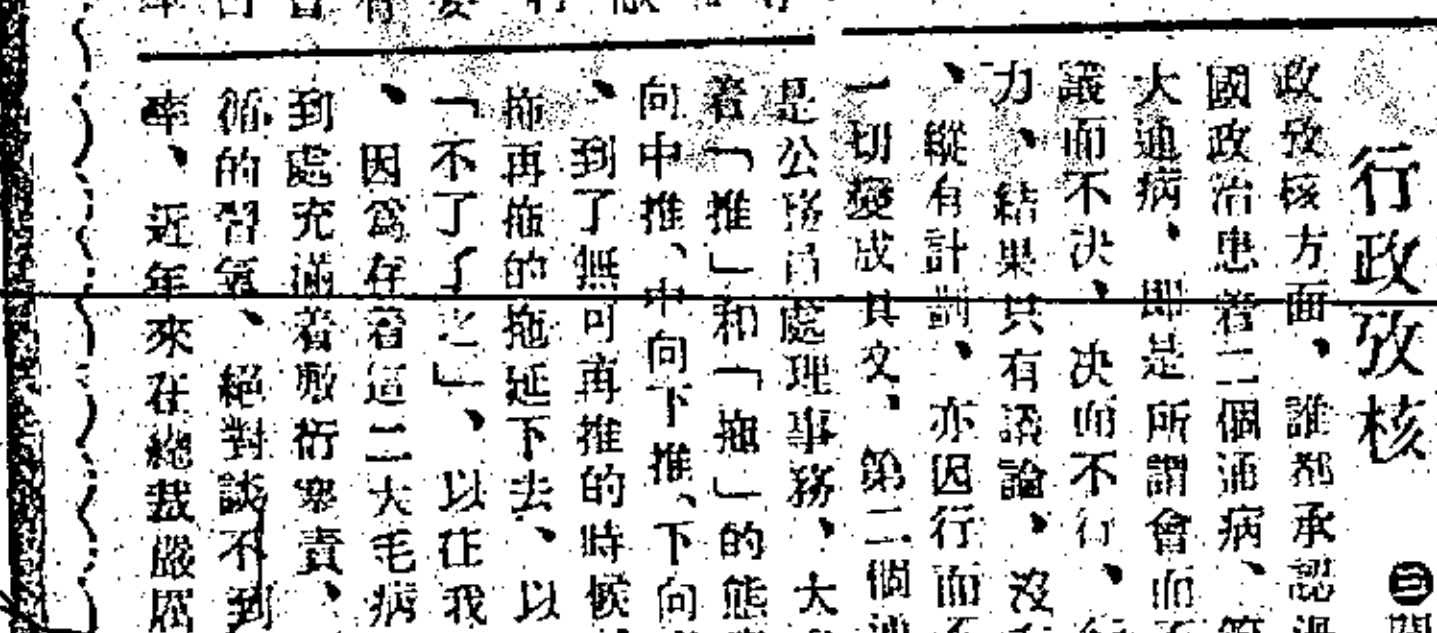 行政攷核
㊂關
政攷核方面、誰都承認過
國政治患着二個通病、第
大通病、即是所謂會而
議而不決、決而不行、行
力、結果只有議論、沒
、縱有計劃、亦因行而不
一切變成具文、第二個通
是公務員處理事務、大
着「推」和「拖」的態
向中推、中向下推、下向
、到了無可再推的時候
拖再拖的拖延下去、以
「不了了之」、以在我
、因爲存着這二大毛病
到處充滿着敷衍塞責、
循的習氣、絕對談不到
率、近年來在總裁嚴厲